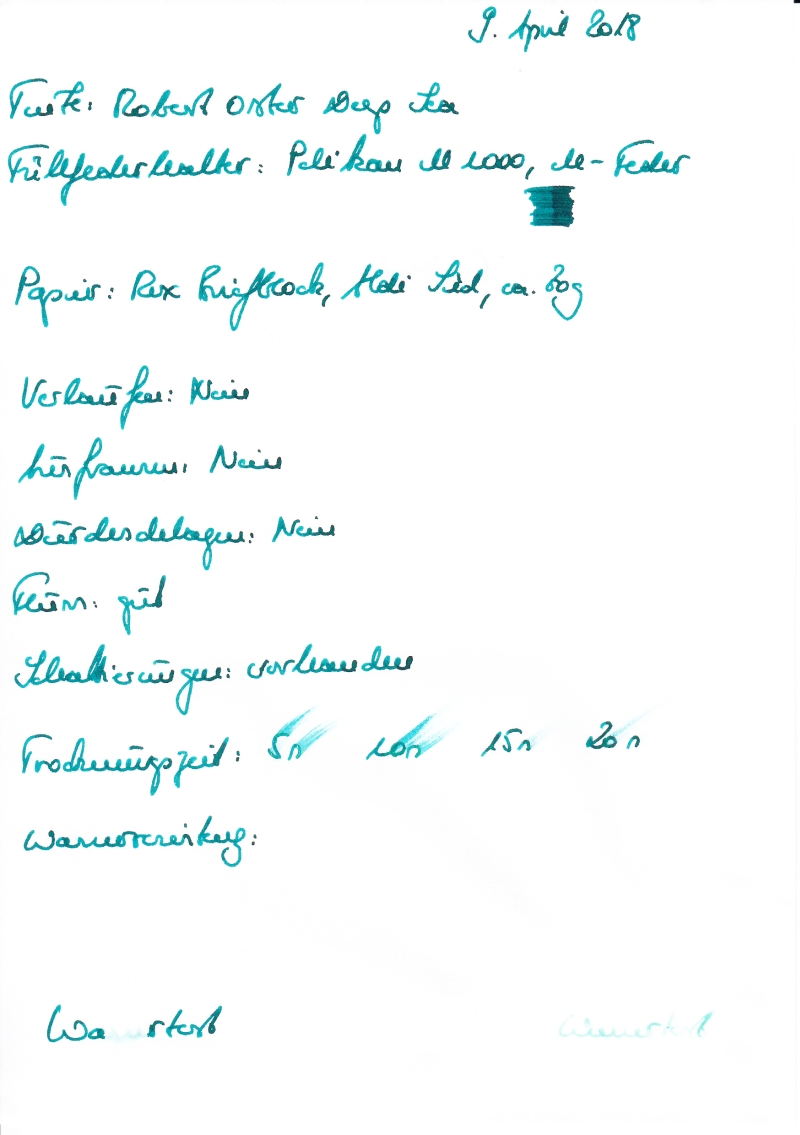 9. April 2018
Tinte: Robert Oster Deep Sea
Füllfederhalter: Pelikan M 1000, M-Feder
Papier: Rex Briefblock, Aldi Süd, ca. 80g
Verlaufen: Nein
Ausfransen: Nein
Durchschlagen: Nein
Fluss: gut
Schattierungen: vorhanden
Trocknungszeit: 5s 10s 15s 20s
Wassertest Wassertest